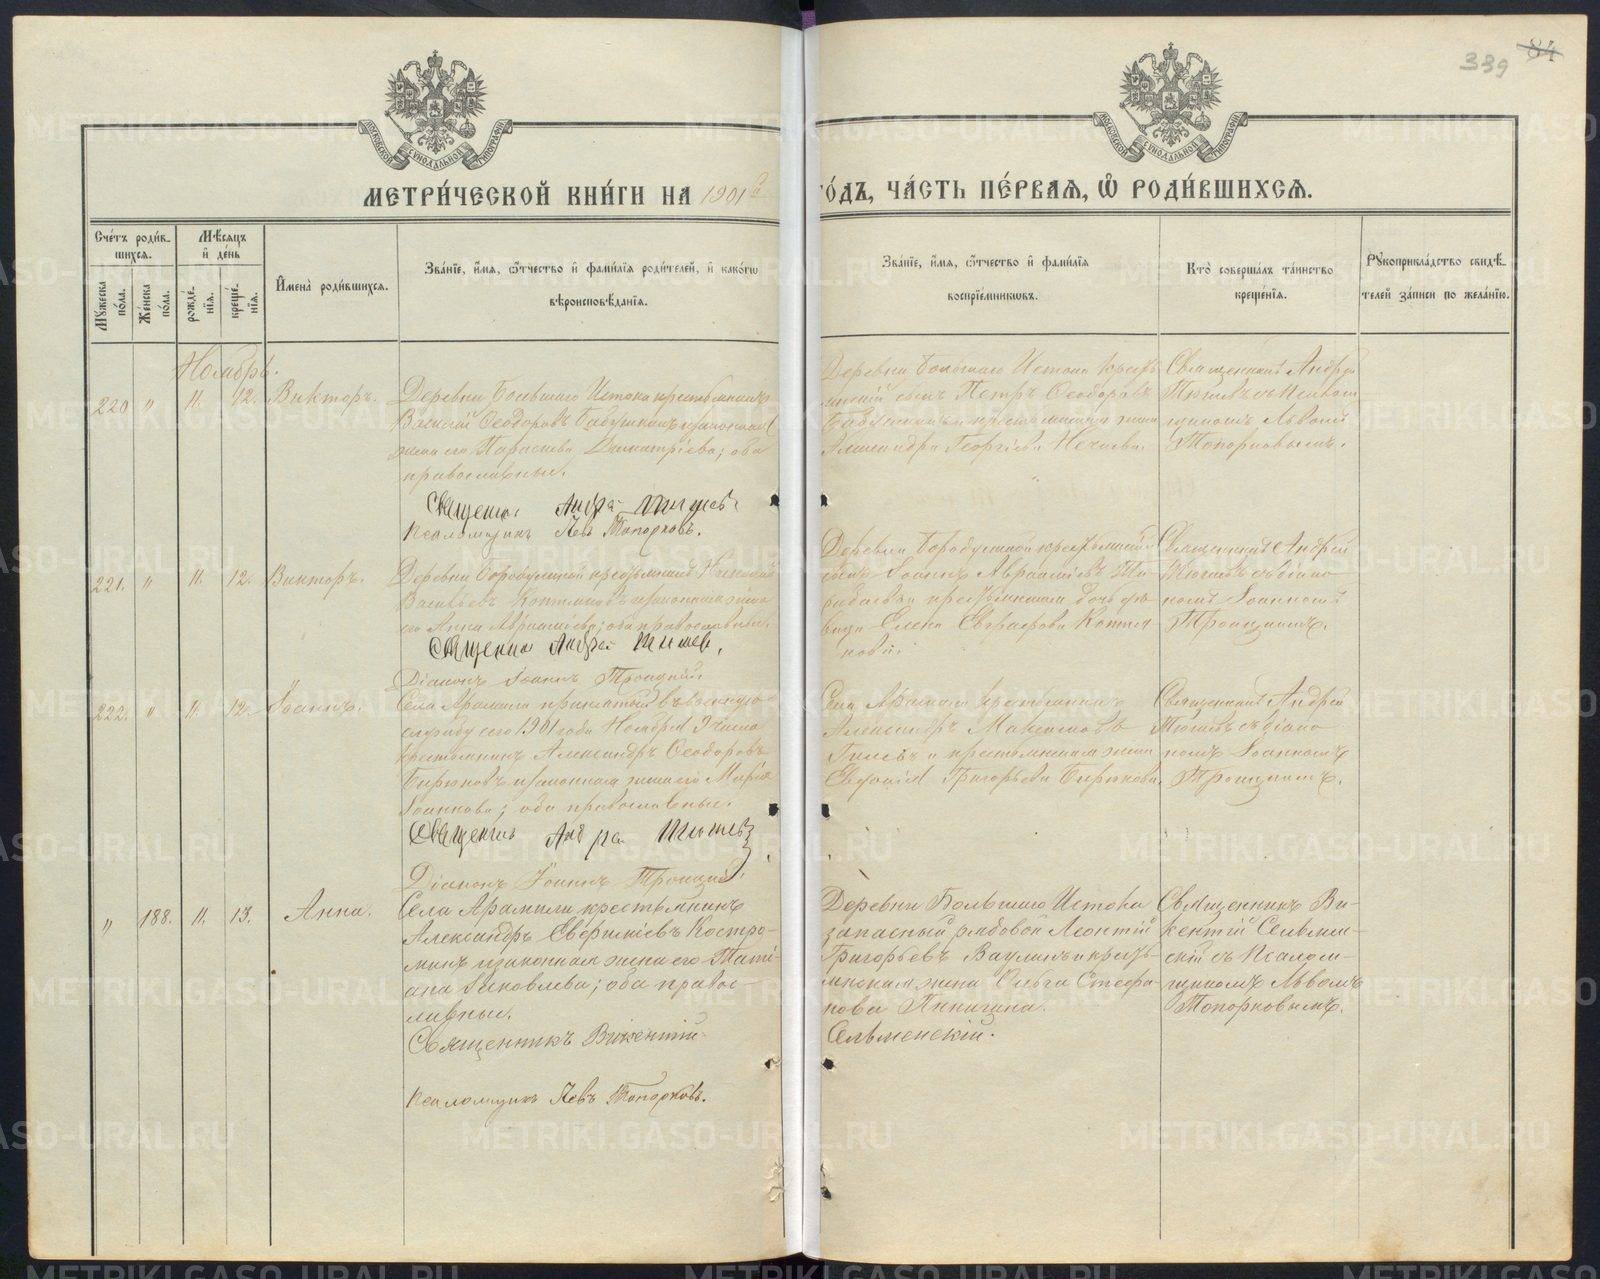 339 84
МОСКОВСКОЙ СѴНОДАЛЬНОЙ ТИПОГРАФІИ
МОСКОВСКОЙ СѴНОДАЛЬНОЙ ТИПОГРАФІИ
МЕТРИ́ЧЕСКОЙ КНИ́ГИ НА 1901й ГО́ДЪ, ЧА́СТЬ ПЕ́РВАЯ, Ѡ РОДИ́ВШИХСЯ.
Сче́тъ роди́в-
шихся.
Мꙋжеска по́ла.
Же́нска по́ла.
Мѣ́сяцъ
и҆ де́нь
рожде́-
нїя.
креще́-
нїя.
И҆мена̀ роди́вшихся.
Зва́нїе, и҆́мя, ѻ҆́тчество и҆ фами́лїя роди́телей, и҆ како́гѡ
вѣроисповѣ́данїя.
Зва́нїе, и҆́мя, ѻ҆́тчество и҆ фами́лїя
воспрїе́мникѡвъ.
Кто̀ соверша́лъ та́инство
креще́нїя.
Рꙋкоприкла́дство свидѣ́-
телей за́писи по жела́нїю.
Ноябрь.
220 " 11. 12. Викторъ.
Деревни Большаго Истока крестьянинъ
Василій Ѳеодоровъ Бабушкинъ и законная
жена его Параскева Димитріева; оба
православные.
Священ. Андрей Тюшевъ
Псаломщикъ Левъ Топорковъ.
Деревни Большаго Истока кресть-
янскій сынъ Петръ Ѳеодоровъ
Бабушкинъ и крестьянская жена
Александра Георгіева Нечаева.
Священникъ Андрей
Тюшевъ съ Псалом-
щикомъ Львомъ
Топорковымъ.
221. " 11. 12. Викторъ.
Деревни Бородулиной крестьянинъ Николай
Васильевъ Коптяковъ и законная жена
его Анна Авраміева; оба православные.
Священникъ Андрей Тюшевъ.
Діаконъ Іоаннъ Троицкій.
Деревни Бородулиной крестьянскій
сынъ Іоаннъ Авраміевъ
крестьянская дочь дѣ-
вица Елена Евграфова Коптя-
кова.
Священникъ Андрей
Тюшевъ съ діако-
номъ Іоанномъ
Троицкимъ.
222. " 11. 12. Іоаннъ.
Села Арамили принятый въ военную
службу сего 1901 года Ноября 9 числа
крестьянинъ Александръ Ѳеодоровъ
Бирюковъ и законная жена его Марія
Іоаннова; оба православные.
Священникъ Андрей Тюшевъ
Діаконъ Іоаннъ Троицкій.
Села Арамили крестьянинъ
Александръ Максимовъ
и крестьянская жена
Евдокія Григорьева Бирюкова.
Священникъ Андрей
Тюшевъ съ діако-
номъ Іоанномъ
Троицкимъ.
" 188. 11. 13. Анна.
Села Арамили крестьянинъ
Александръ Евѳиміевъ Костро-
минъ и законная жена его Тати-
ана Яковлева; оба правос-
лавные.
Священникъ Викентій Сельменскій.
Псаломщикъ Левъ Топорковъ.
Деревни Большаго Истока
запасный рядовой Леонтій
Григорьевъ Ваулинъ и кресть-
янская жена Ольга Стефа-
нова Аникина.
Священникъ Ви-
кентій Сельмен-
скій съ Псалом-
щикомъ Львомъ
Топорковымъ.
METRIKI.GASO-URAL.RU